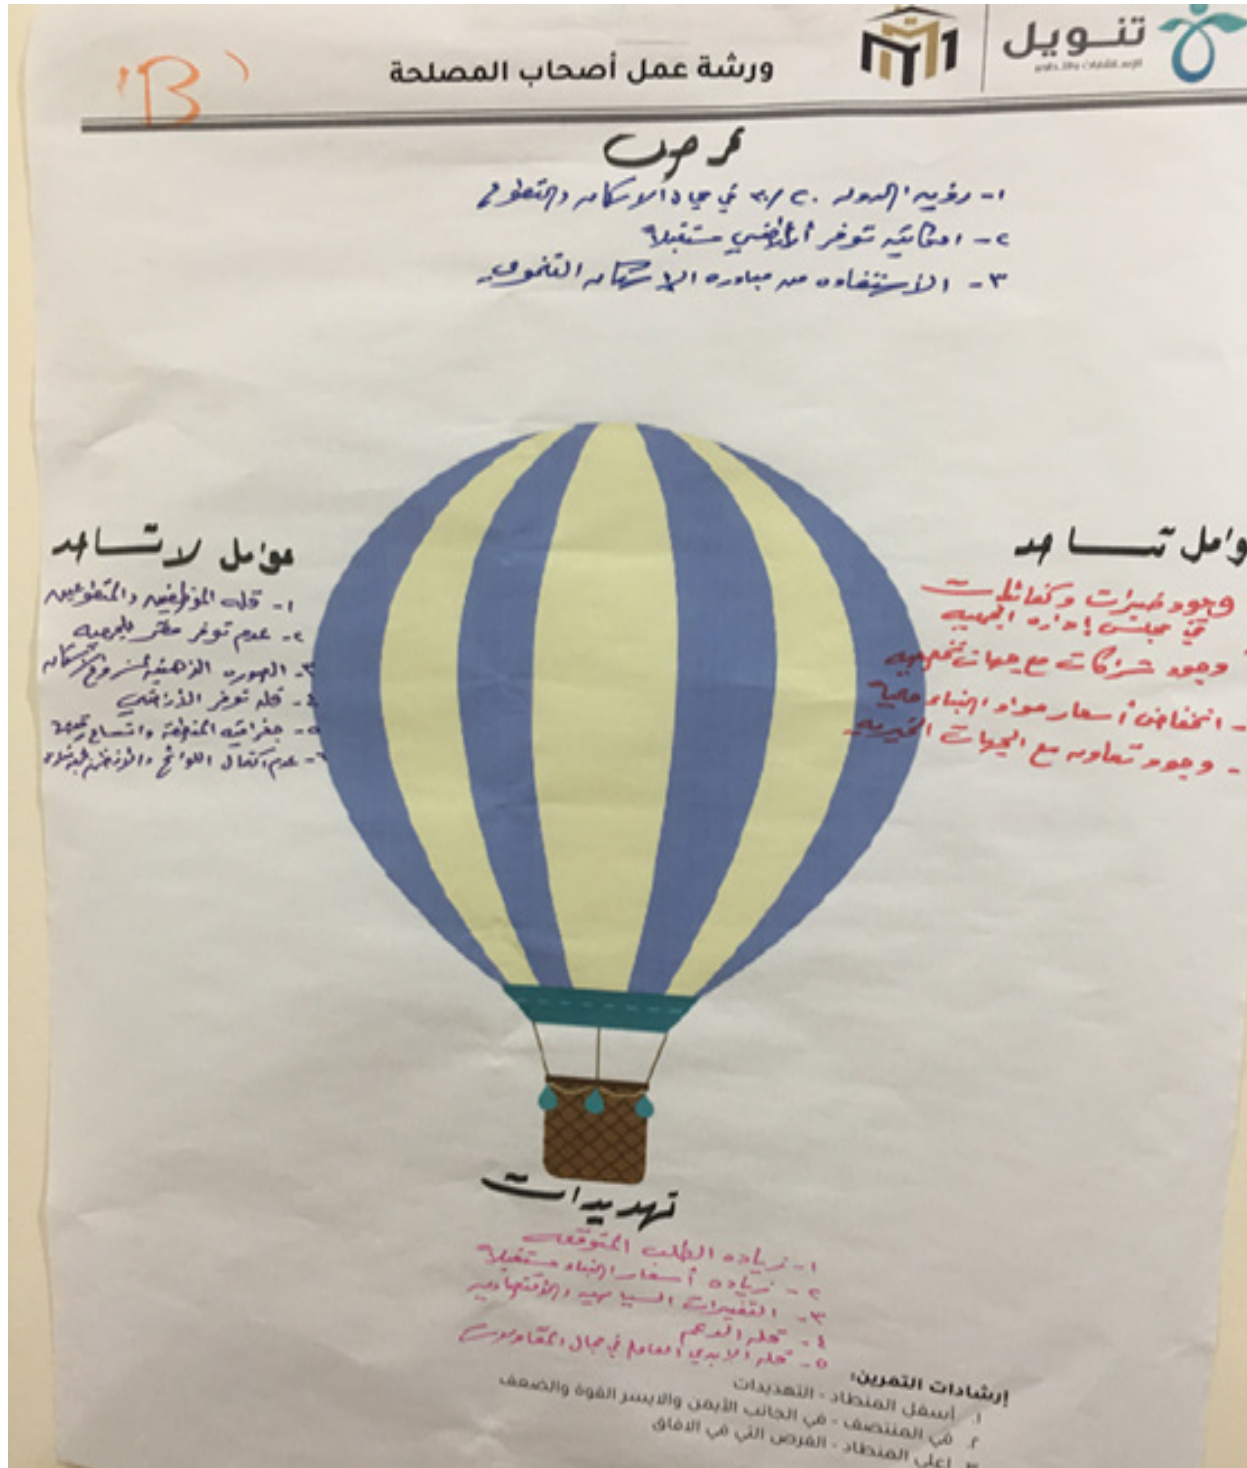 تنويل
ورشة عمل أصحاب المصلحة
'B'
فرص
١- رؤيه الدوله ٢٠/٣٠ في مجال الاسكان والتطوع
٢- امكانية توفر أراضي مستقبلاً
٣- الأستفاده من مبادره الإسكان التنموي
وامل تساعد
وجود خبرات وكفائات
في مجلس إداره الجمعيه
وجود شراكات مع جهات
- انخفاض أسعار مواد البناء حالياً
- وجود تعاون مع الجهات الخيريه
عوامل لا تساعد
١- قله الموظفين والمتطوعين
٢- عدم توفر مقر للجمعيه
٣- الصوره الذهنيه الاسكان
٤- قله توفر الأراضي
٥- جغرافيه المنطقة واتساع
٦- عدم اكتمال اللوائح والأنظمه
تهديدات
١- زياده الطلب المتوقعه
٢- زياده أسعار البناء مستقبلاً
٣- التغيرات السياسيه والأقتصاديه
٤- قله الدعم
٥- قله الايدي العامله في مجال المقاولات
إرشادات التمرين:
١. أسفل المنطاد - التهديدات
٢. في المنتصف - في الجانب الأيمن والايسر القوة والضعف
٣. اعلى المنطاد - الفرص التي في الافاق